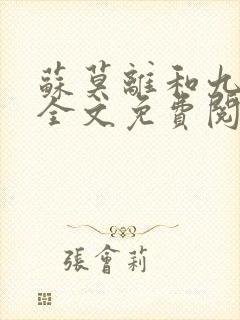 蘇莫離和九
全文免費閱
張會莉